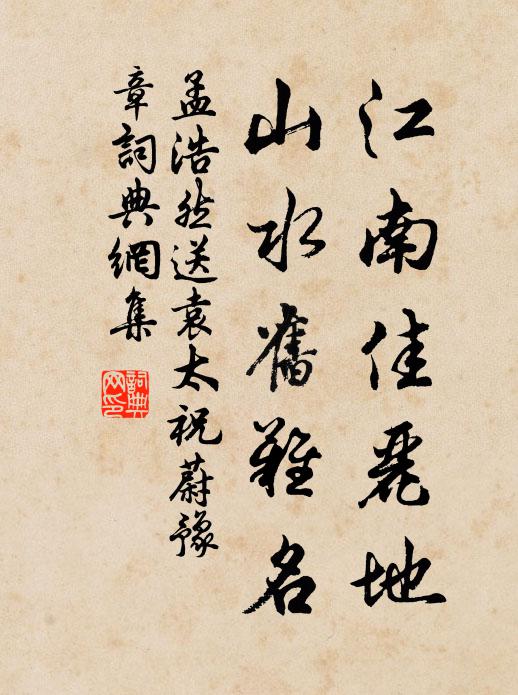 江南佳麗地
山水舊難名
孟浩然送袁太祝蔚豫
章詞典網集
詞典网印